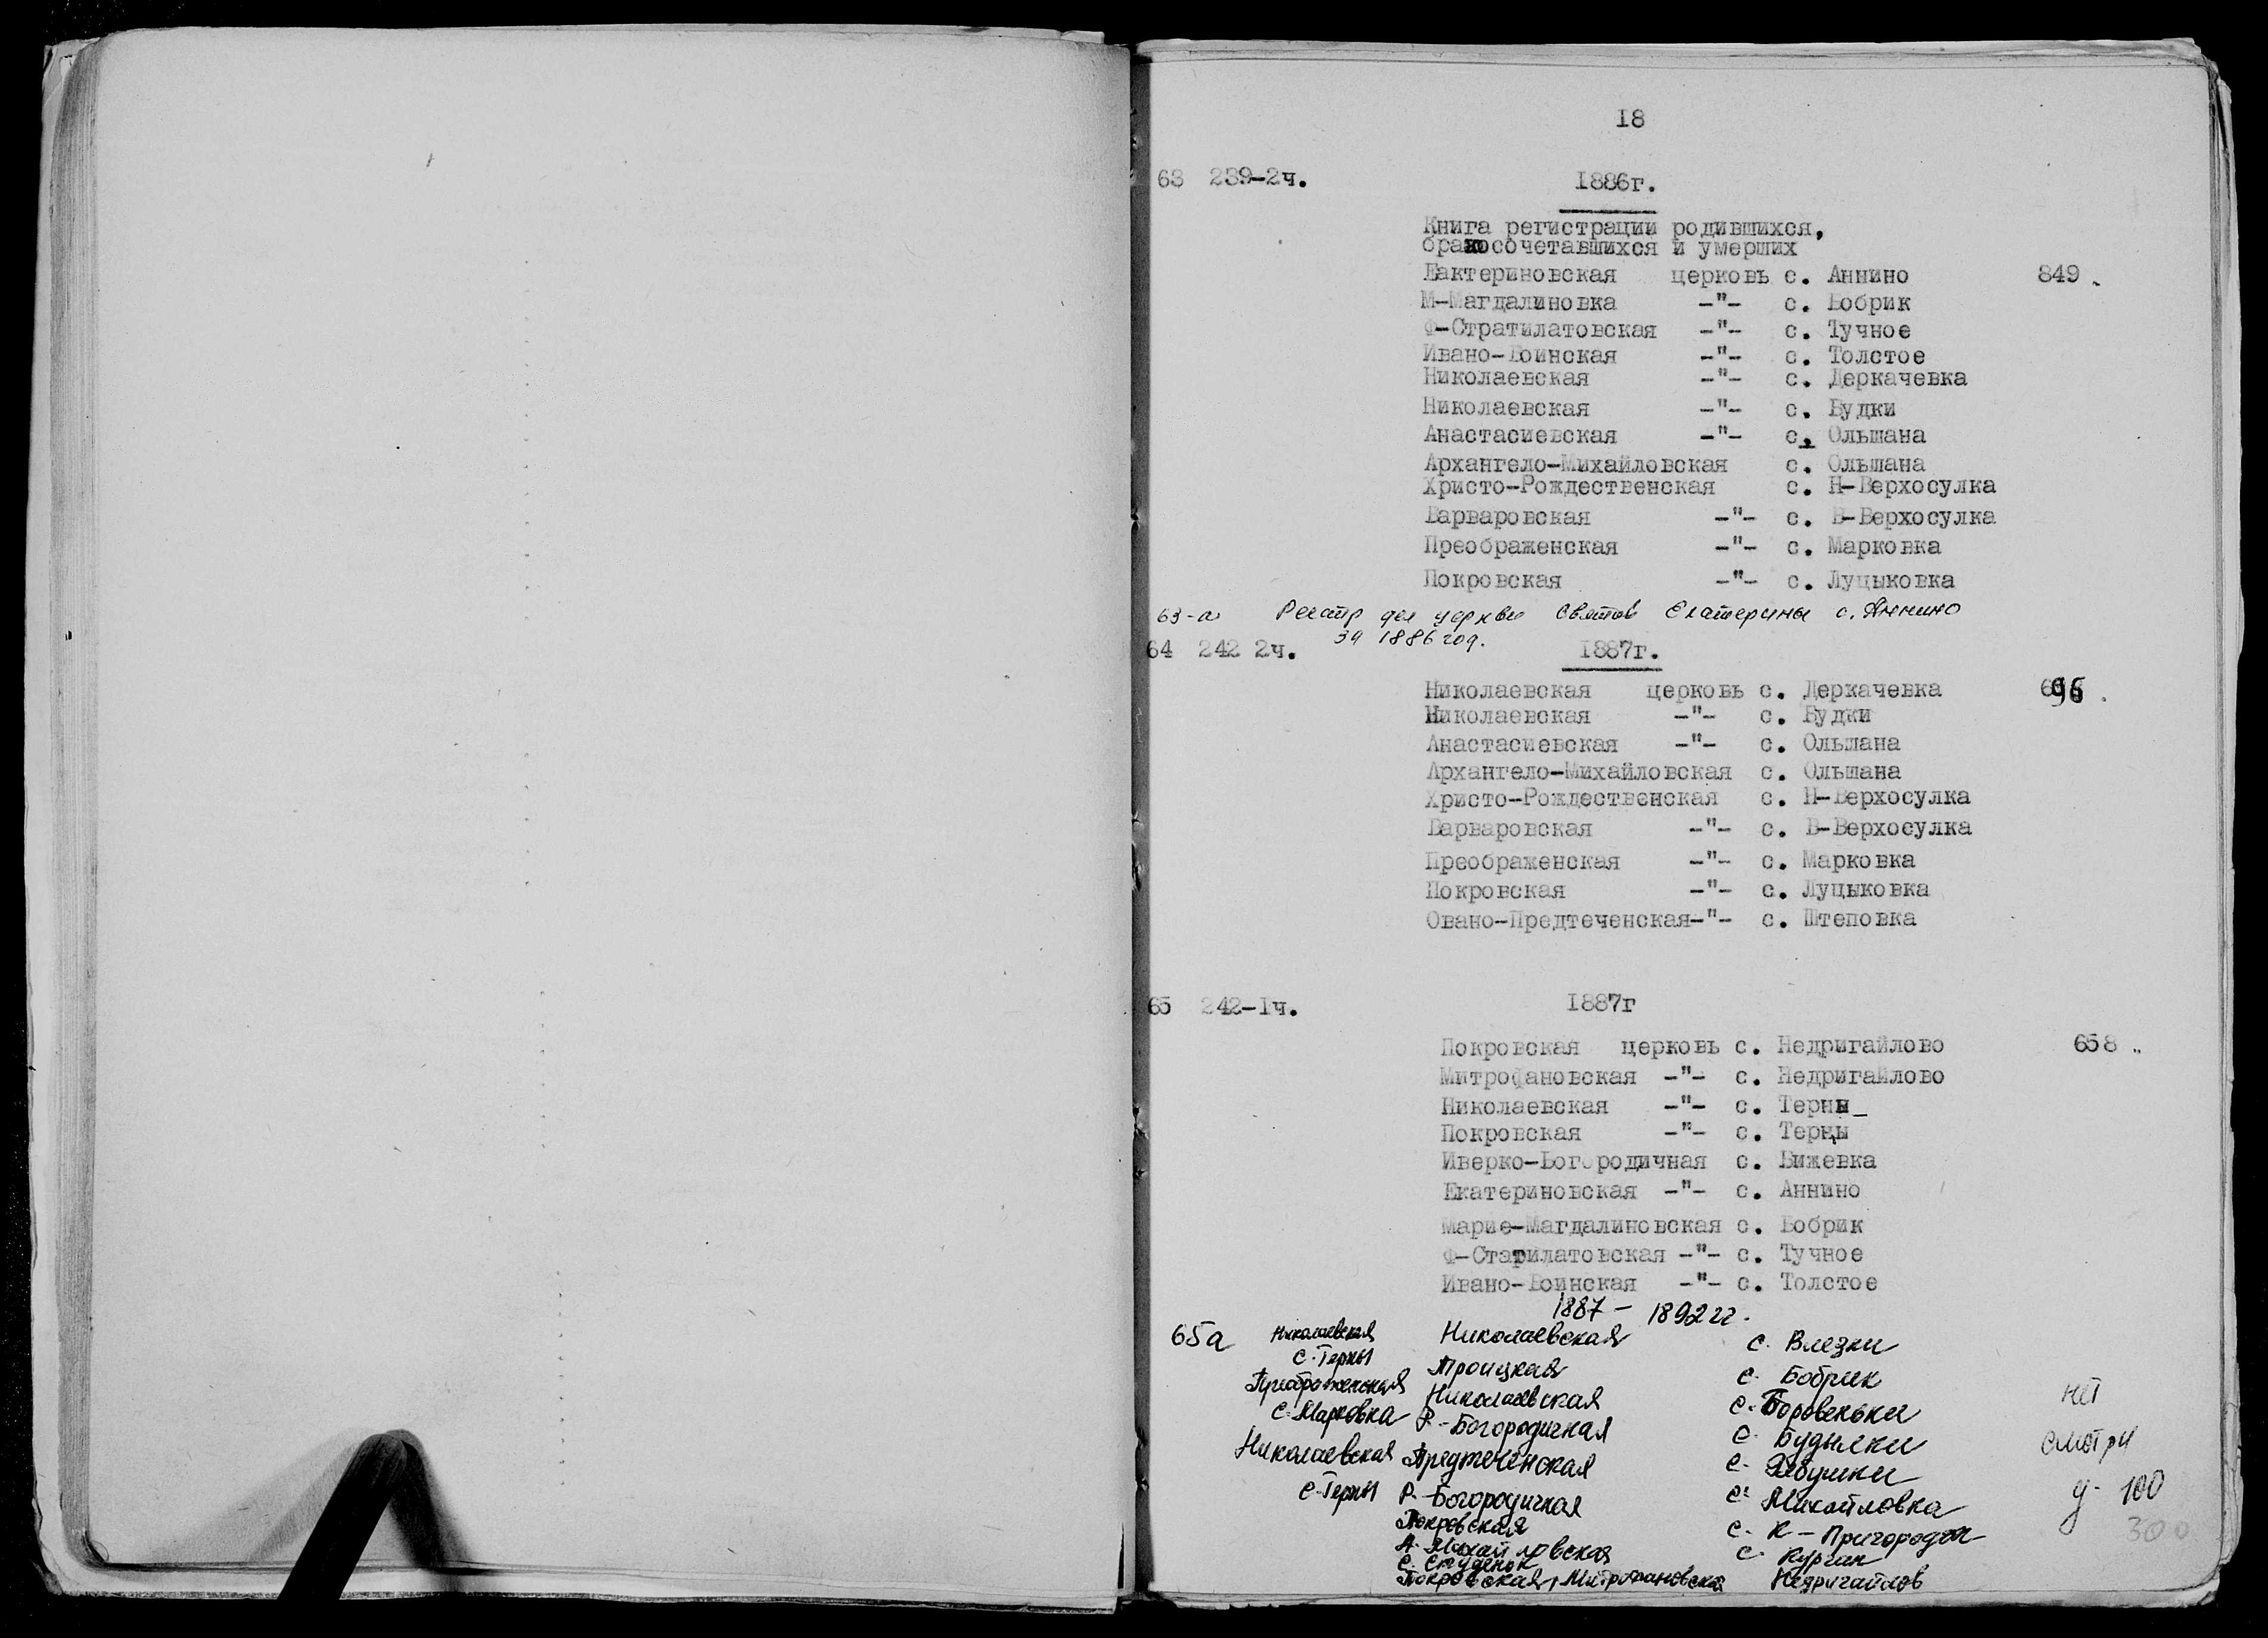 18
63 239-2ч. 1886г.
Книга регистрации родившихся,
бракосочетавшихся и умерших
Екатериновская церковь с. Аннино 849
М-Магдалиновка -"- с. Бобрик
Ф-Стратилатовская -"- с. Тучное
Ивано-Воинская -"- с. Толстое
Николаевская -"- с. Деркачевка
Николаевская -"- с. Будки
Анастасиевская -"- с. Ольшана
Архангело-Михайловская с. Ольшана
Христо-Рождественская с. Н-Верхосулка
Варваровская -"- с. В-Верхосулка
Преображенская -"- с. Марковка
Покровская -"- с. Луцыковка
63-а Реестр дел церкви Святой Екатерины с. Аннино
за 1886 год.
64 242 2ч. 1887г.
Николаевская церковь с. Деркачевка
Николаевская -"- с. Будки
Анастасиевская -"- с. Ольшана
Архангело-Михайловская с. Ольшана
Христо-Рождественская с. Н-Верхосулка
Варваровская -"- с. В-Верхосулка
Преображенская -"- с. Марковка
Покровская -"- с. Луцыковка
Овано-Предтеченская-"- с. Штеповка
65 242-1ч. 1887г
Покровская церковь с. Недригайлово 658
Митрофановская -"- с. Недригайлово
Николаевская -"- с. Терны
Покровская -"- с. Терны
Иверко-Богородичная с. Вижевка
Екатериновская -"- с. Аннино
Марие-Магдалиновская с. Бобрик
Ф-Старилатовская -"- с. Тучное
Ивано-Воинская -"- с. Толстое
1887 - 1892 гг.
65а Николаевская Николаевская с. Влезки
с. Терны Троицкая с. Бобрик
Преображенская Николаевская с. Боровеньки нет
с. Марковка Р.-Богородичная с. Будылки смотри
Николаевская Предтеченская с. Рябушки
с. Терны Р.-Богородичная с. Михайловка д. 100
Покровская с. К-Пригородок 300
А. Михайловская с. Курган
с. Студенок
Покровская, Митрофановская Недригайлов